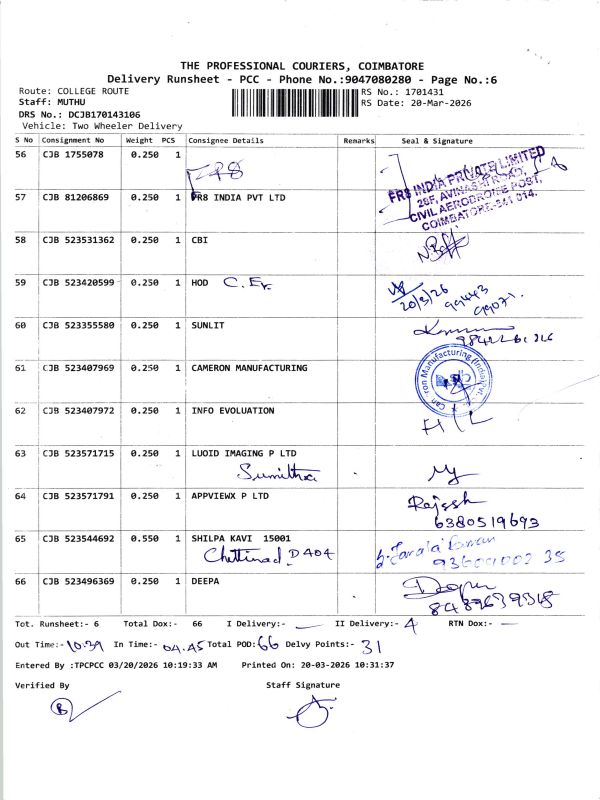 THE PROFESSIONAL COURIERS, COIMBATORE
Delivery Runsheet - PCC - Phone No.:9047080280 - Page No.:6
Route: COLLEGE ROUTE
Staff: MUTHU
DRS No.: DCJB170143106
Vehicle: Two Wheeler Delivery
RS No.: 1701431
RS Date: 20-Mar-2026
S No Consignment No Weight PCS Consignee Details Remarks Seal & Signature
56 CJB 1755078 0.250 1
FR8 INDIA PRIVATE LIMITED
28F, AVINASHI ROAD,
CIVIL AERODROME POST,
COIMBATORE-641 014.
57 CJB 81206869 0.250 1 FR8 INDIA PVT LTD
58 CJB 523531362 0.250 1 CBI
59 CJB 523420599 0.250 1 HOD
20/3/26
99443
60 CJB 523355580 0.250 1 SUNLIT
61 CJB 523407969 0.250 1 CAMERON MANUFACTURING
Cameron Manufacturing (India) Pvt.
62 CJB 523407972 0.250 1 INFO EVOLUATION
63 CJB 523571715 0.250 1 LUOID IMAGING P LTD
Sumithra
64 CJB 523571791 0.250 1 APPVIEWX P LTD
Rajesh
6380519693
65 CJB 523544692 0.550 1 SHILPA KAVI 15001
Chettinad D404
66 CJB 523496369 0.250 1 DEEPA
Tot. Runsheet:- 6 Total Dox:- 66 I Delivery:- — II Delivery:- 4 RTN Dox:- —
Out Time:- 10:39 In Time:- 04.45 Total POD: 66 Delvy Points:- 31
Entered By :TPCPCC 03/20/2026 10:19:33 AM Printed On: 20-03-2026 10:31:37
Verified By Staff Signature